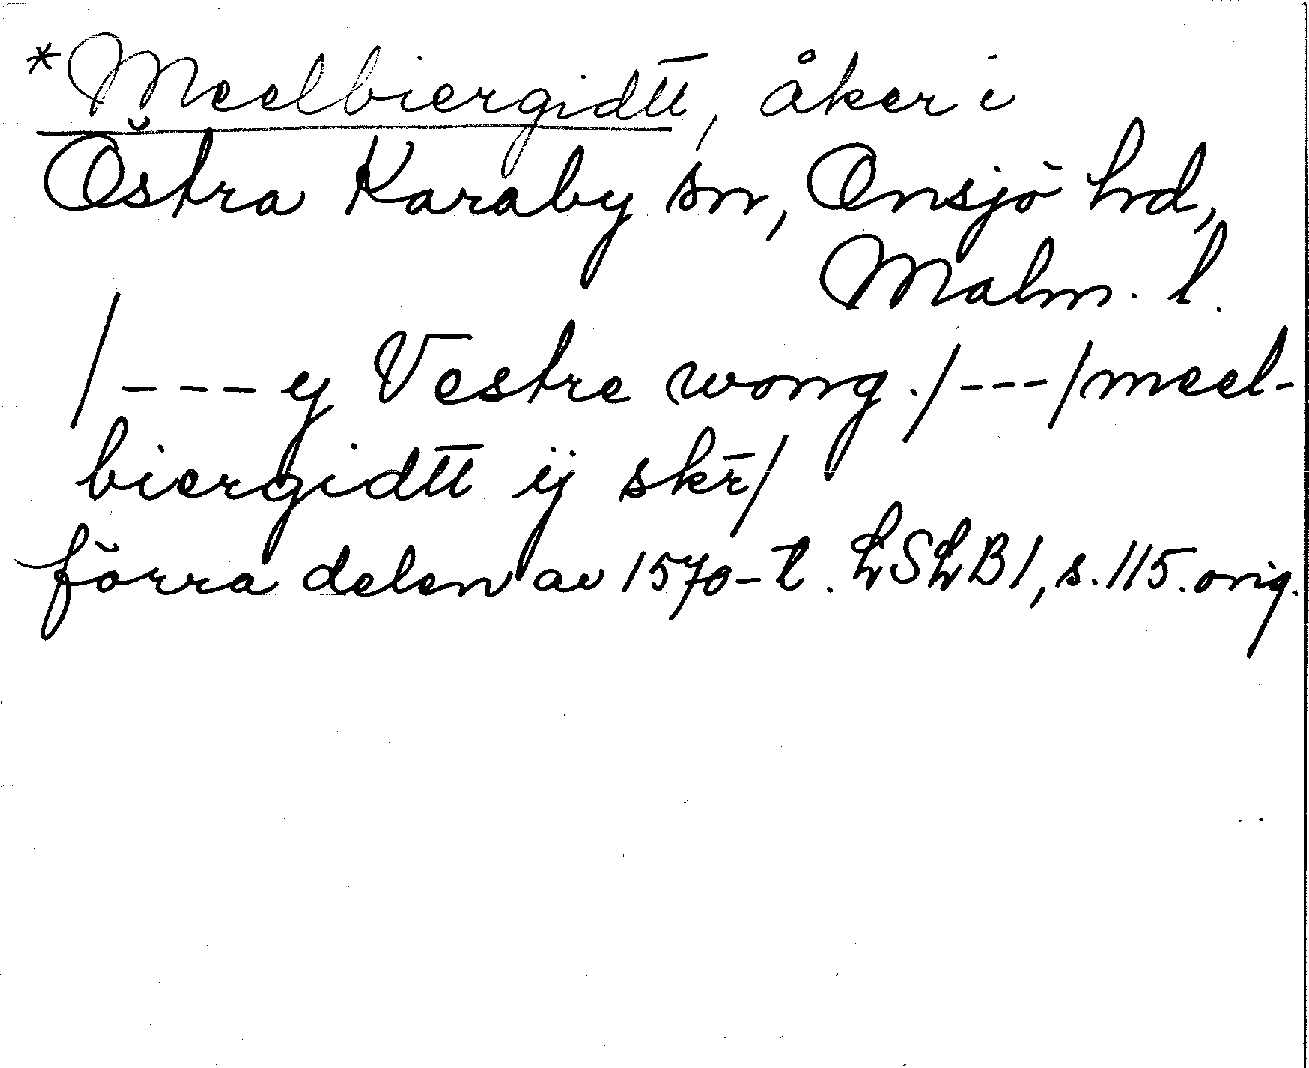 *Meelbiergidtt, åker i
Östra Karaby sn, Onsjö hd,
Malm. l.
/---y Vestre wong./---/meel-
biergidtt ij skr̄/
förra delen av 1570-t. LSLB1, s. 115. orig.